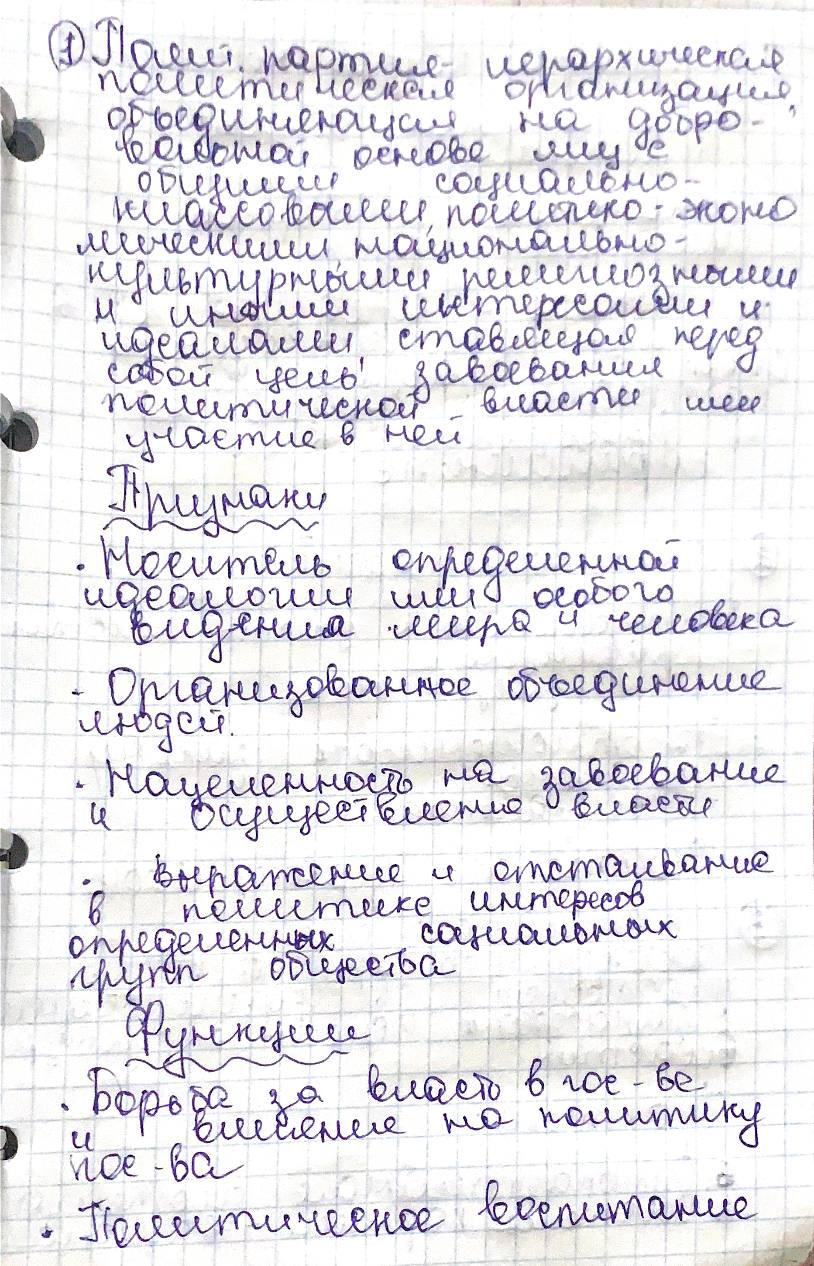 ① Полит. партия- иерархическая
политическая организация,
объединяющая на добро-
вольной основе лиц с
общими социально-
классовыми, политико-эконо
мическими национально-
культурными религиозными
и иными интересами и
идеалами ставящая перед
собой цель завоевания
политической власти или
участие в ней
Признаки
· Носитель определенной
идеологии или особого
видения мира и человека
- Организованное объединение
людей.
· Нацеленность на завоевание
и осуществление власти
· выражение и отстаивание
в политике интересов
определенных социальных
групп общества
Функции
· Борьба за власть в гос-ве
и влияние на политику
гос-ва
· Политическое воспитание